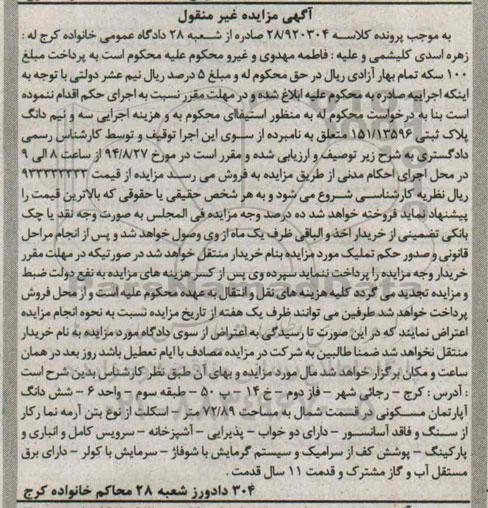 آگهی مزایده غیر منقول
به موجب پرونده کلاسه ۲۸/۹۲۰۳۰۴ صادره از شعبه ۲۸ دادگاه عمومی خانواده کرج له :
زهره اسدی کلیشمی و علیه : فاطمه مهدوی و غیرو محکوم علیه محکوم است به پرداخت مبلغ
۱۰۰ سکه تمام بهار آزادی ریال در حق محکوم له و مبلغ ۵ درصد ریال نیم عشر دولتی با توجه به
اینکه اجراییه صادره به محکوم علیه ابلاغ شده و در مهلت مقرر نسبت به اجرای حکم اقدام ننموده
است بنا به درخواست محکوم له به منظور استیفای محکوم به و هزینه اجرایی سه و نیم دانگ
پلاک ثبتی ۱۵۱/۱۳۵۹۶ متعلق به نامبرده از سوی این اجرا توقیف و توسط کارشناس رسمی
دادگستری به شرح زیر توصیف و ارزیابی شده و مقرر است در مورخ ۹۴/۸/۲۷ از ساعت ۸ الی ۹
در محل اجرای احکام مدنی از طریق مزایده به فروش می رسد مزایده از قیمت ۹۳۳۳۳۳۳۳۳
ریال نظریه کارشناسی شروع می شود و به هر شخص حقیقی یا حقوقی که بالاترین قیمت را
پیشنهاد نماید فروخته خواهد شد ده درصد وجه مزایده فی المجلس به صورت وجه نقد یا چک
بانکی تضمینی از خریدار اخذ و الباقی ظرف یک ماه از وی وصول خواهد شد و پس از انجام مراحل
قانونی و صدور حکم تملیک مورد مزایده بنام خریدار منتقل خواهد شد در صورتیکه در مهلت مقرر
خریدار وجه مزایده را پرداخت ننماید سپرده وی پس از کسر هزینه های مزایده به نفع دولت ضبط
و مزایده تجدید می گردد کلیه هزینه های نقل و انتقال به عهده محکوم علیه است و از محل فروش
پرداخت خواهد شد طرفین می توانند ظرف یک هفته از تاریخ مزایده نسبت به نحوه انجام مزایده
اعتراض نمایند که در این صورت تا رسیدگی به اعتراض از سوی دادگاه مورد مزایده به نام خریدار
منتقل نخواهد شد ضمنا طالبین به شرکت در مزایده مصادف با ایام تعطیل باشد روز بعد در همان
ساعت و مکان برگزار خواهد شد مال مورد مزایده و بهای آن طبق نظر کارشناس بدین شرح است
: آدرس : کرج – رجائی شهر – فاز دوم – خ ۱۴ – پ ۵۰ – طبقه سوم – واحد ۶ – شش دانگ
آپارتمان مسکونی در قسمت شمال به مساحت ۷۲/۸۹ متر – اسکلت از نوع بتن آرمه نما رکار
از سنگ و فاقد آسانسور – دارای دو خواب – پذیرایی – آشپزخانه – سرویس کامل و انباری و
پارکینگ – پوشش کف از سرامیک و سیستم گرمایش با شوفاژ – سرمایش با کولر – دارای برق
مستقل آب و گاز مشترک و قدمت ۱۱ سال قدمت .
۳۰۴ دادورز شعبه ۲۸ محاکم خانواده کرج